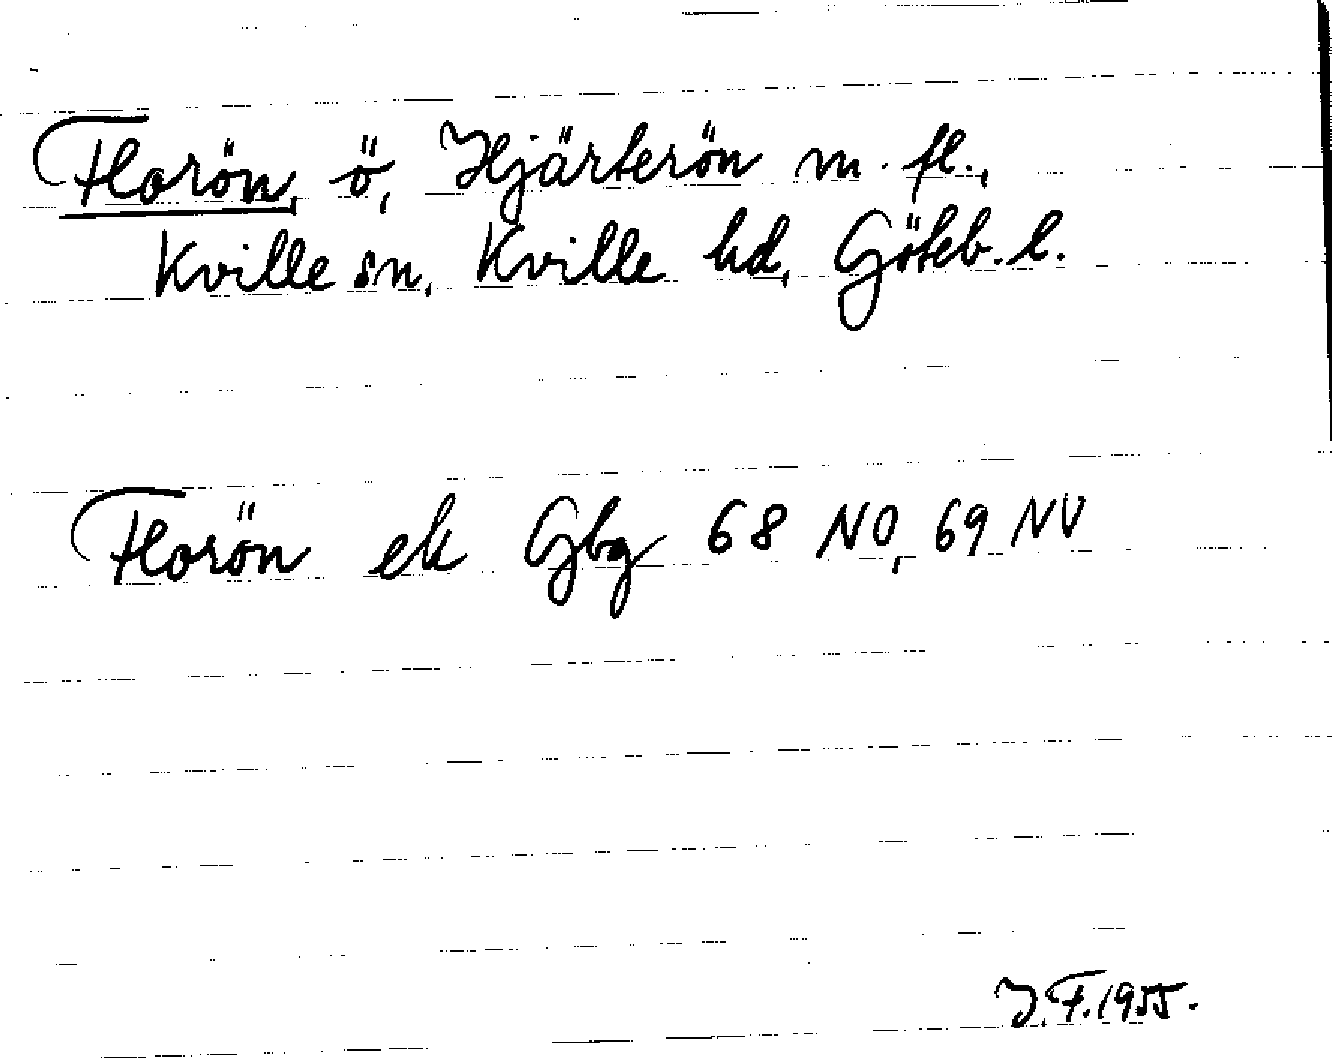 Florön, ö, Hjärterön m. fl.,
Kville sn, Kville hd, Göteb. l.
Florön ek Gbg 68 NO, 69 NV
J. F. 1955.